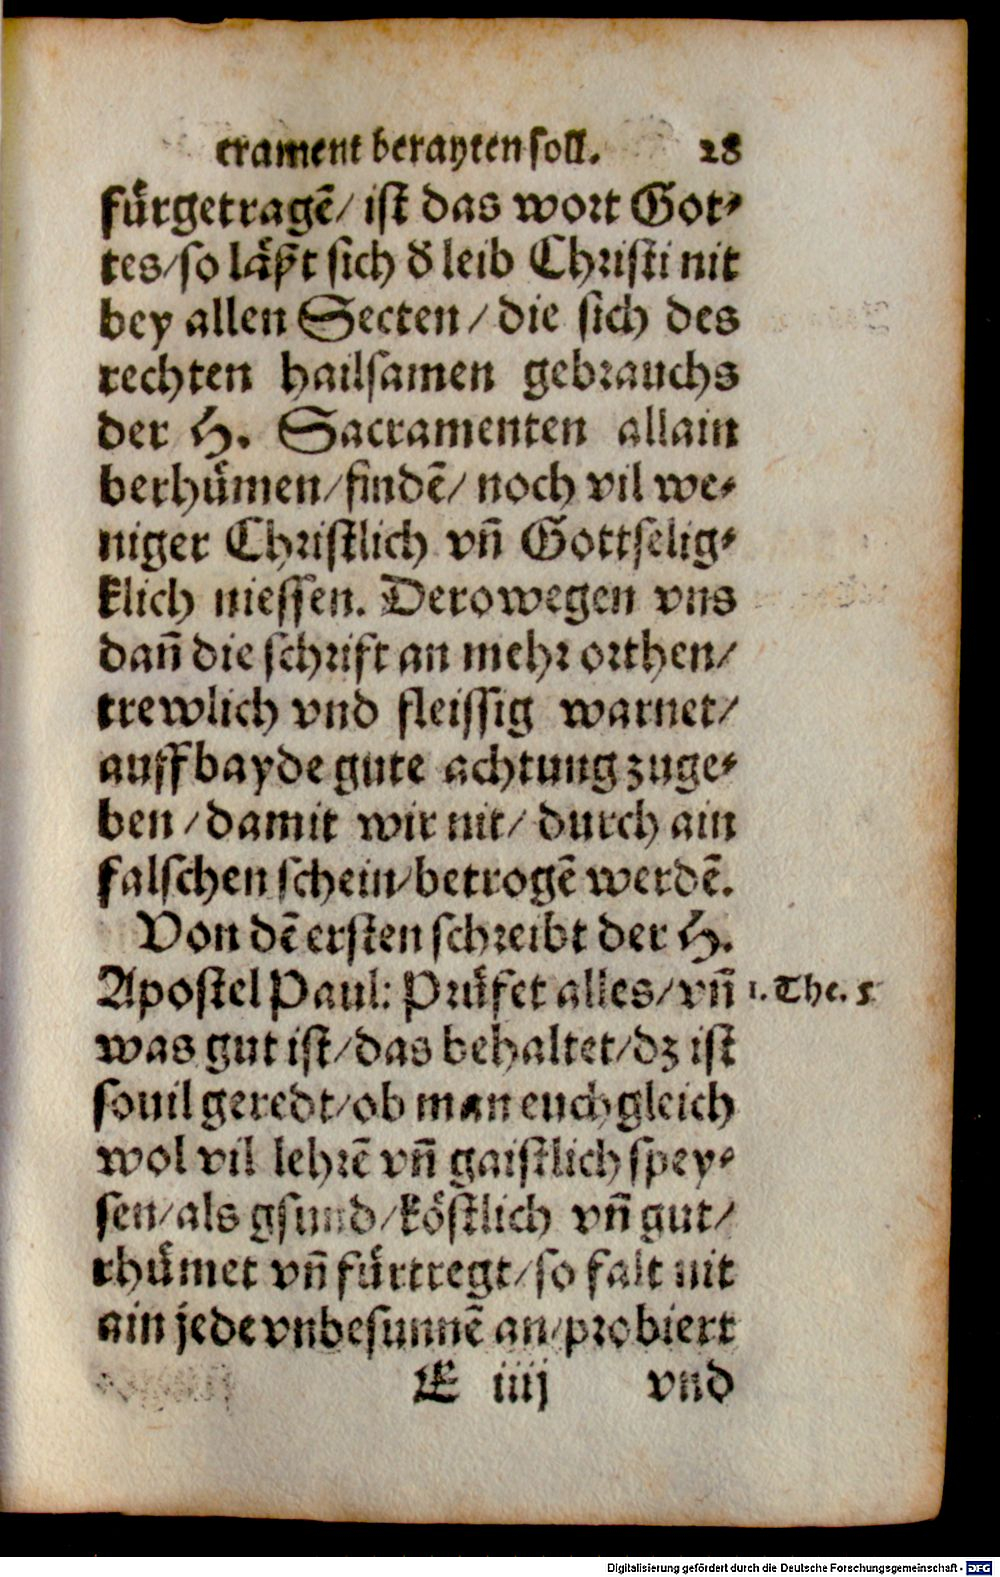 crament berayten soll. 28
fürgetragē/ ist das wort Got-
tes/so läßt sich d̕ leib Christi nit
bey allen Secten/ die sich des
rechten hailsamen gebrauchs
der H. Sacramenten allain
berhümen/findē/ noch vil we-
niger Christlich vn̄ Gottselig-
klich niessen. Derowegen vns
dan̄ die schrift an mehr orthen/
trewlich vnd fleissig warnet/
auff bayde gute achtung zuge-
ben/damit wir nit/ durch ain
falschen schein/betrogē werdē.
Von dē ersten schreibt der H.
Apostel Paul: Prüfet alles/ vn̄ 1. The. 5
was gut ist/das behaltet/dz ist
souil geredt/ob man euch gleich
wol vil lehrē vn̄ gaistlich spey-
sen/als gsund/köstlich vn̄ gut/
rhümet vn̄ fürtregt/so falt nit
ain jede vnbesunnē an/probiert
E iiij vnd
Digitalisierung gefördert durch die Deutsche Forschungsgemeinschaft - DFG